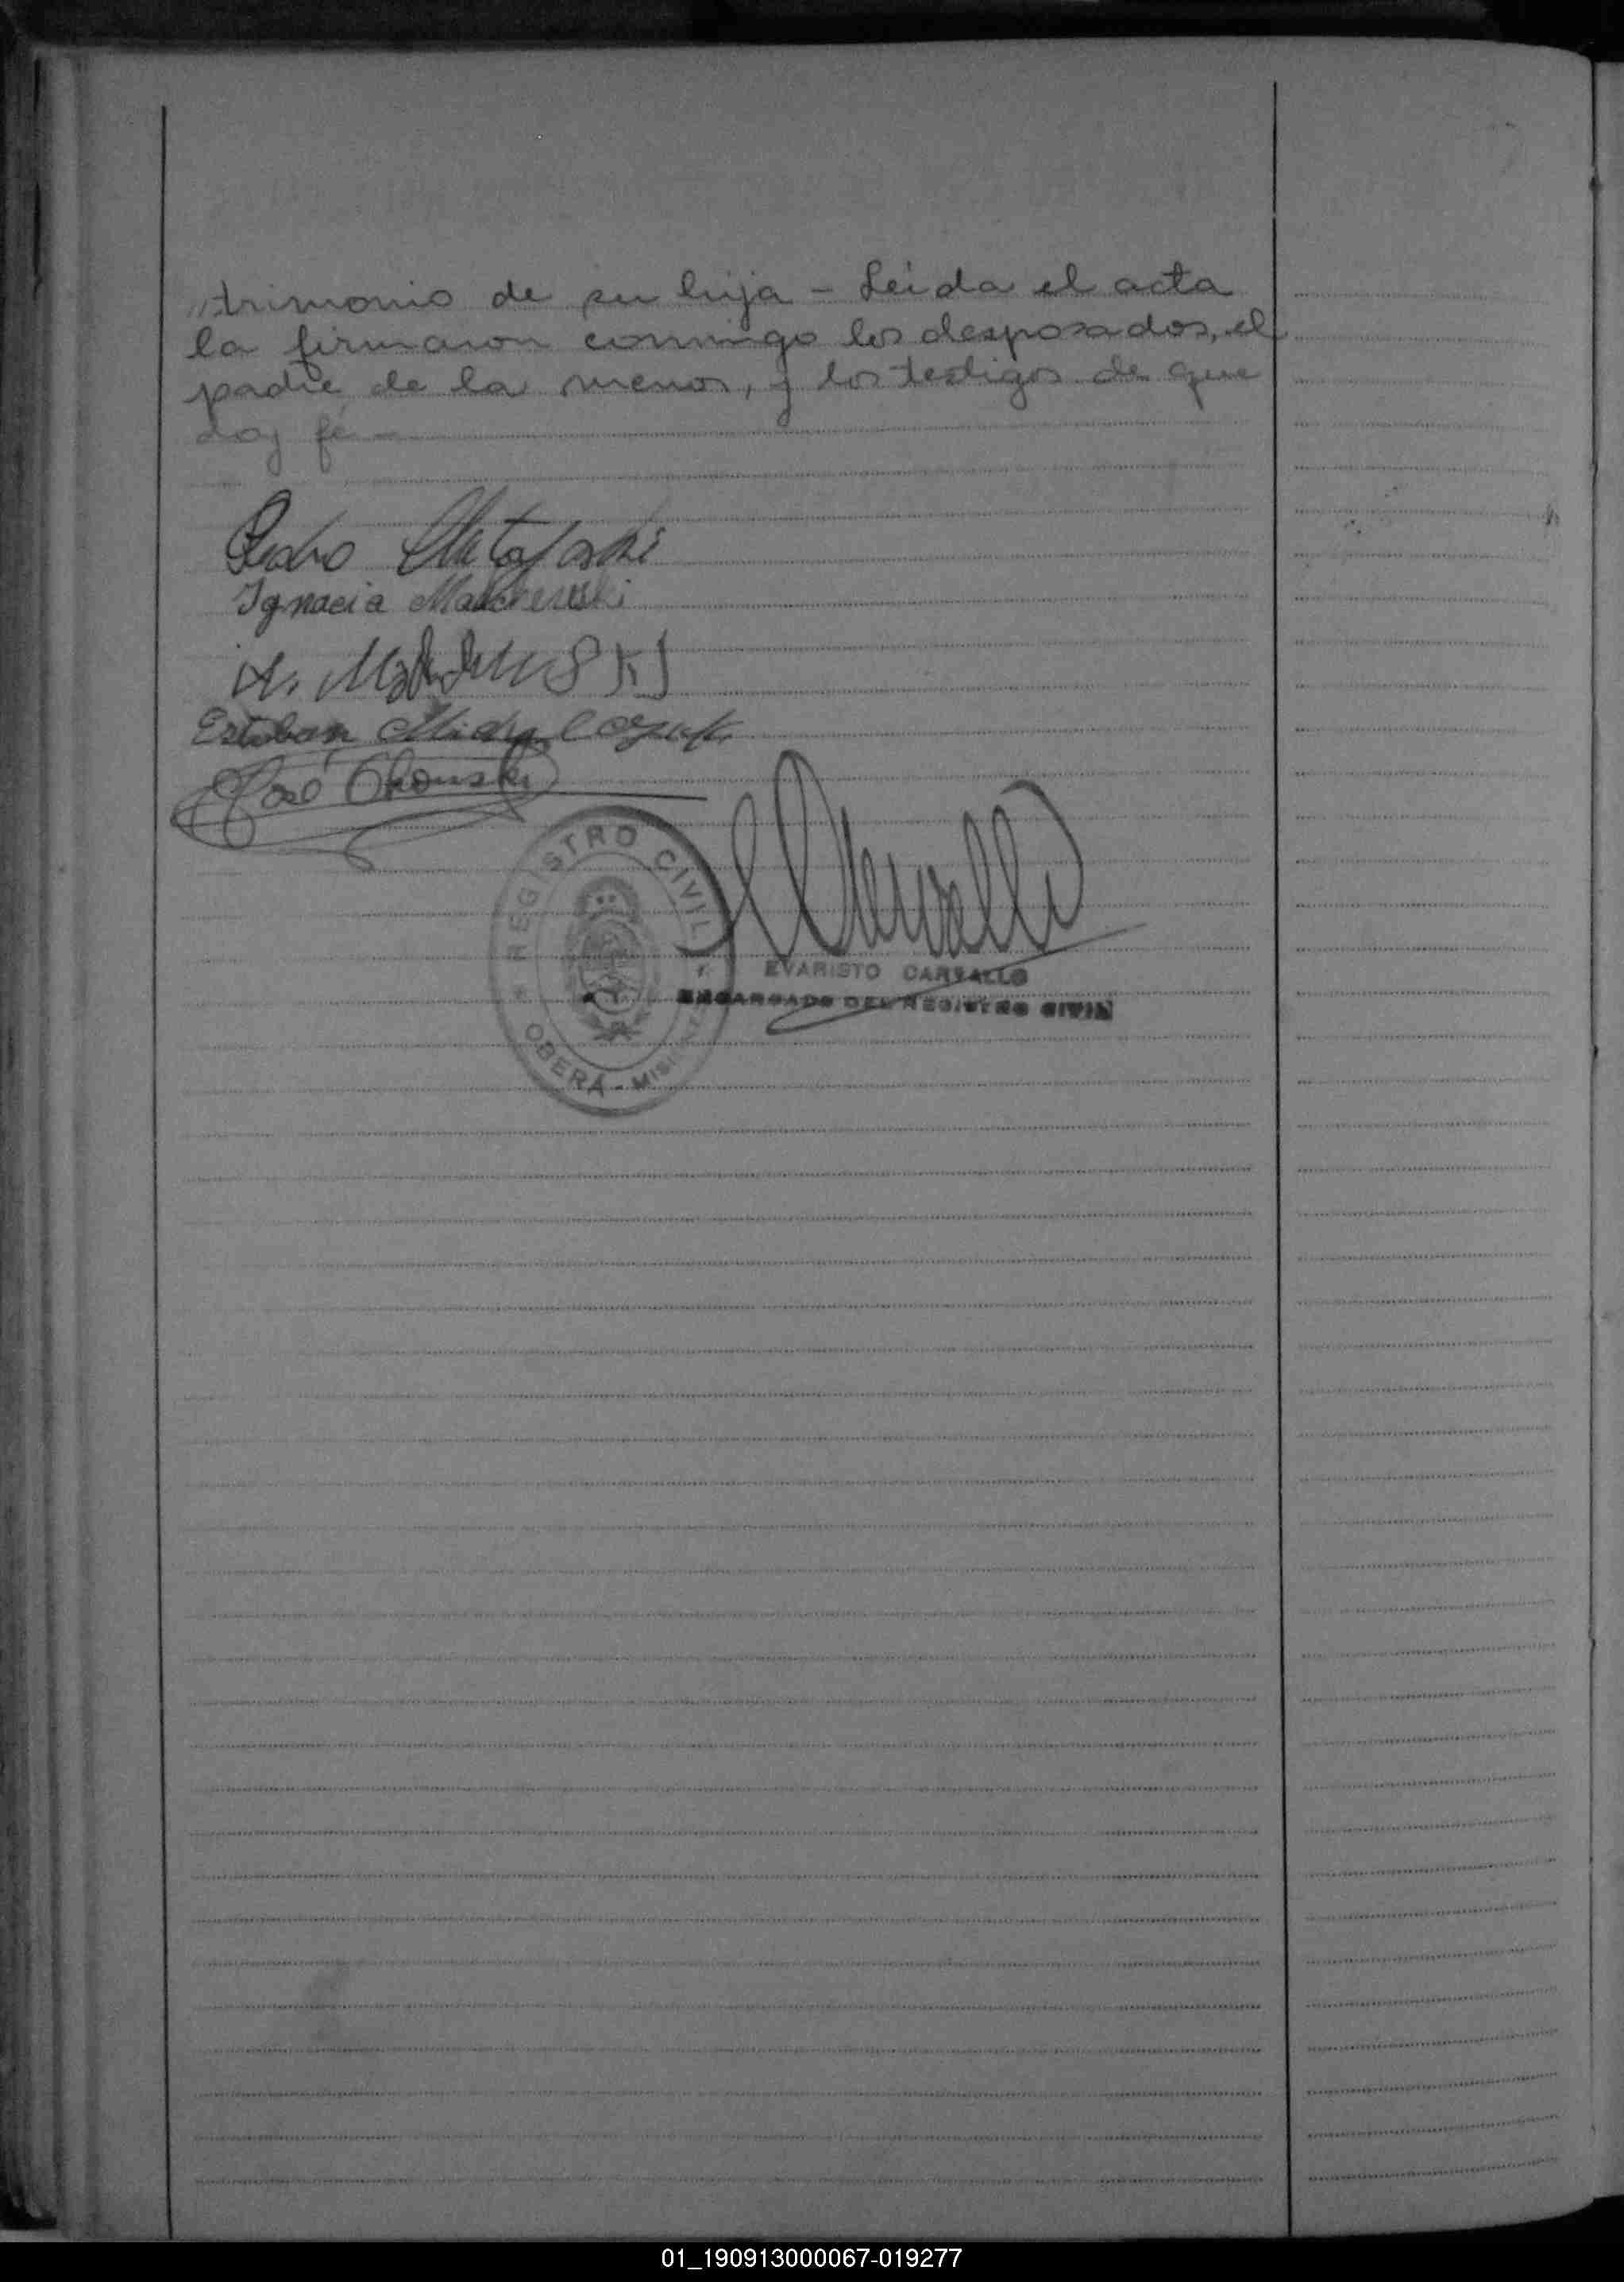 "trimonio de su hija - Leida el acta
la firmaron conmigo los desposados, el
padre de la menor, y los testigos de que
doy fé -
Pedro
Ignacia
Esteban
José
REGISTRO CIVIL
OBERÁ - MISIONES
EVARISTO CARVALLO
ENCARGADO DEL REGISTRO CIVIL
01_190913000067-019277